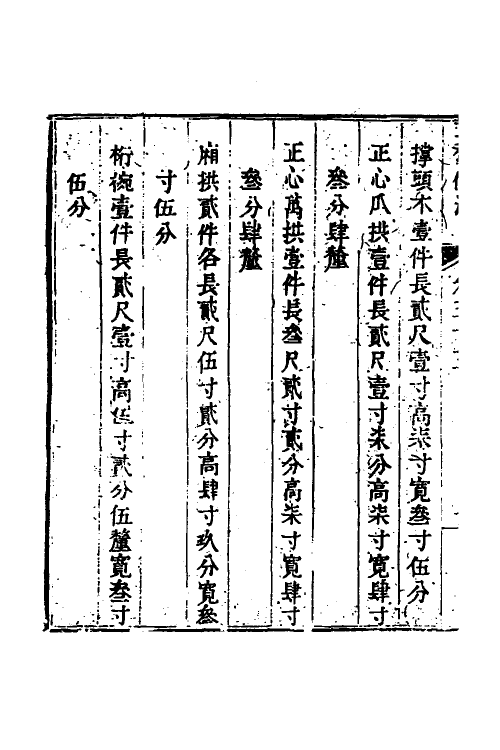 撑頭木壹件長貳尺壹寸高柒寸寬叁寸伍分
正心瓜拱壹件長貳尺壹寸柒分高柒寸寬肆寸
叁分肆釐
正心萬拱壹件長叁尺貳寸貳分高柒寸寬肆寸
叁分肆釐
廂拱貳件各長貳尺伍寸貳分高肆寸玖分寬叁
寸伍分
桁椀壹件長貳尺壹寸高伍寸貳分伍釐寬叁寸
伍分